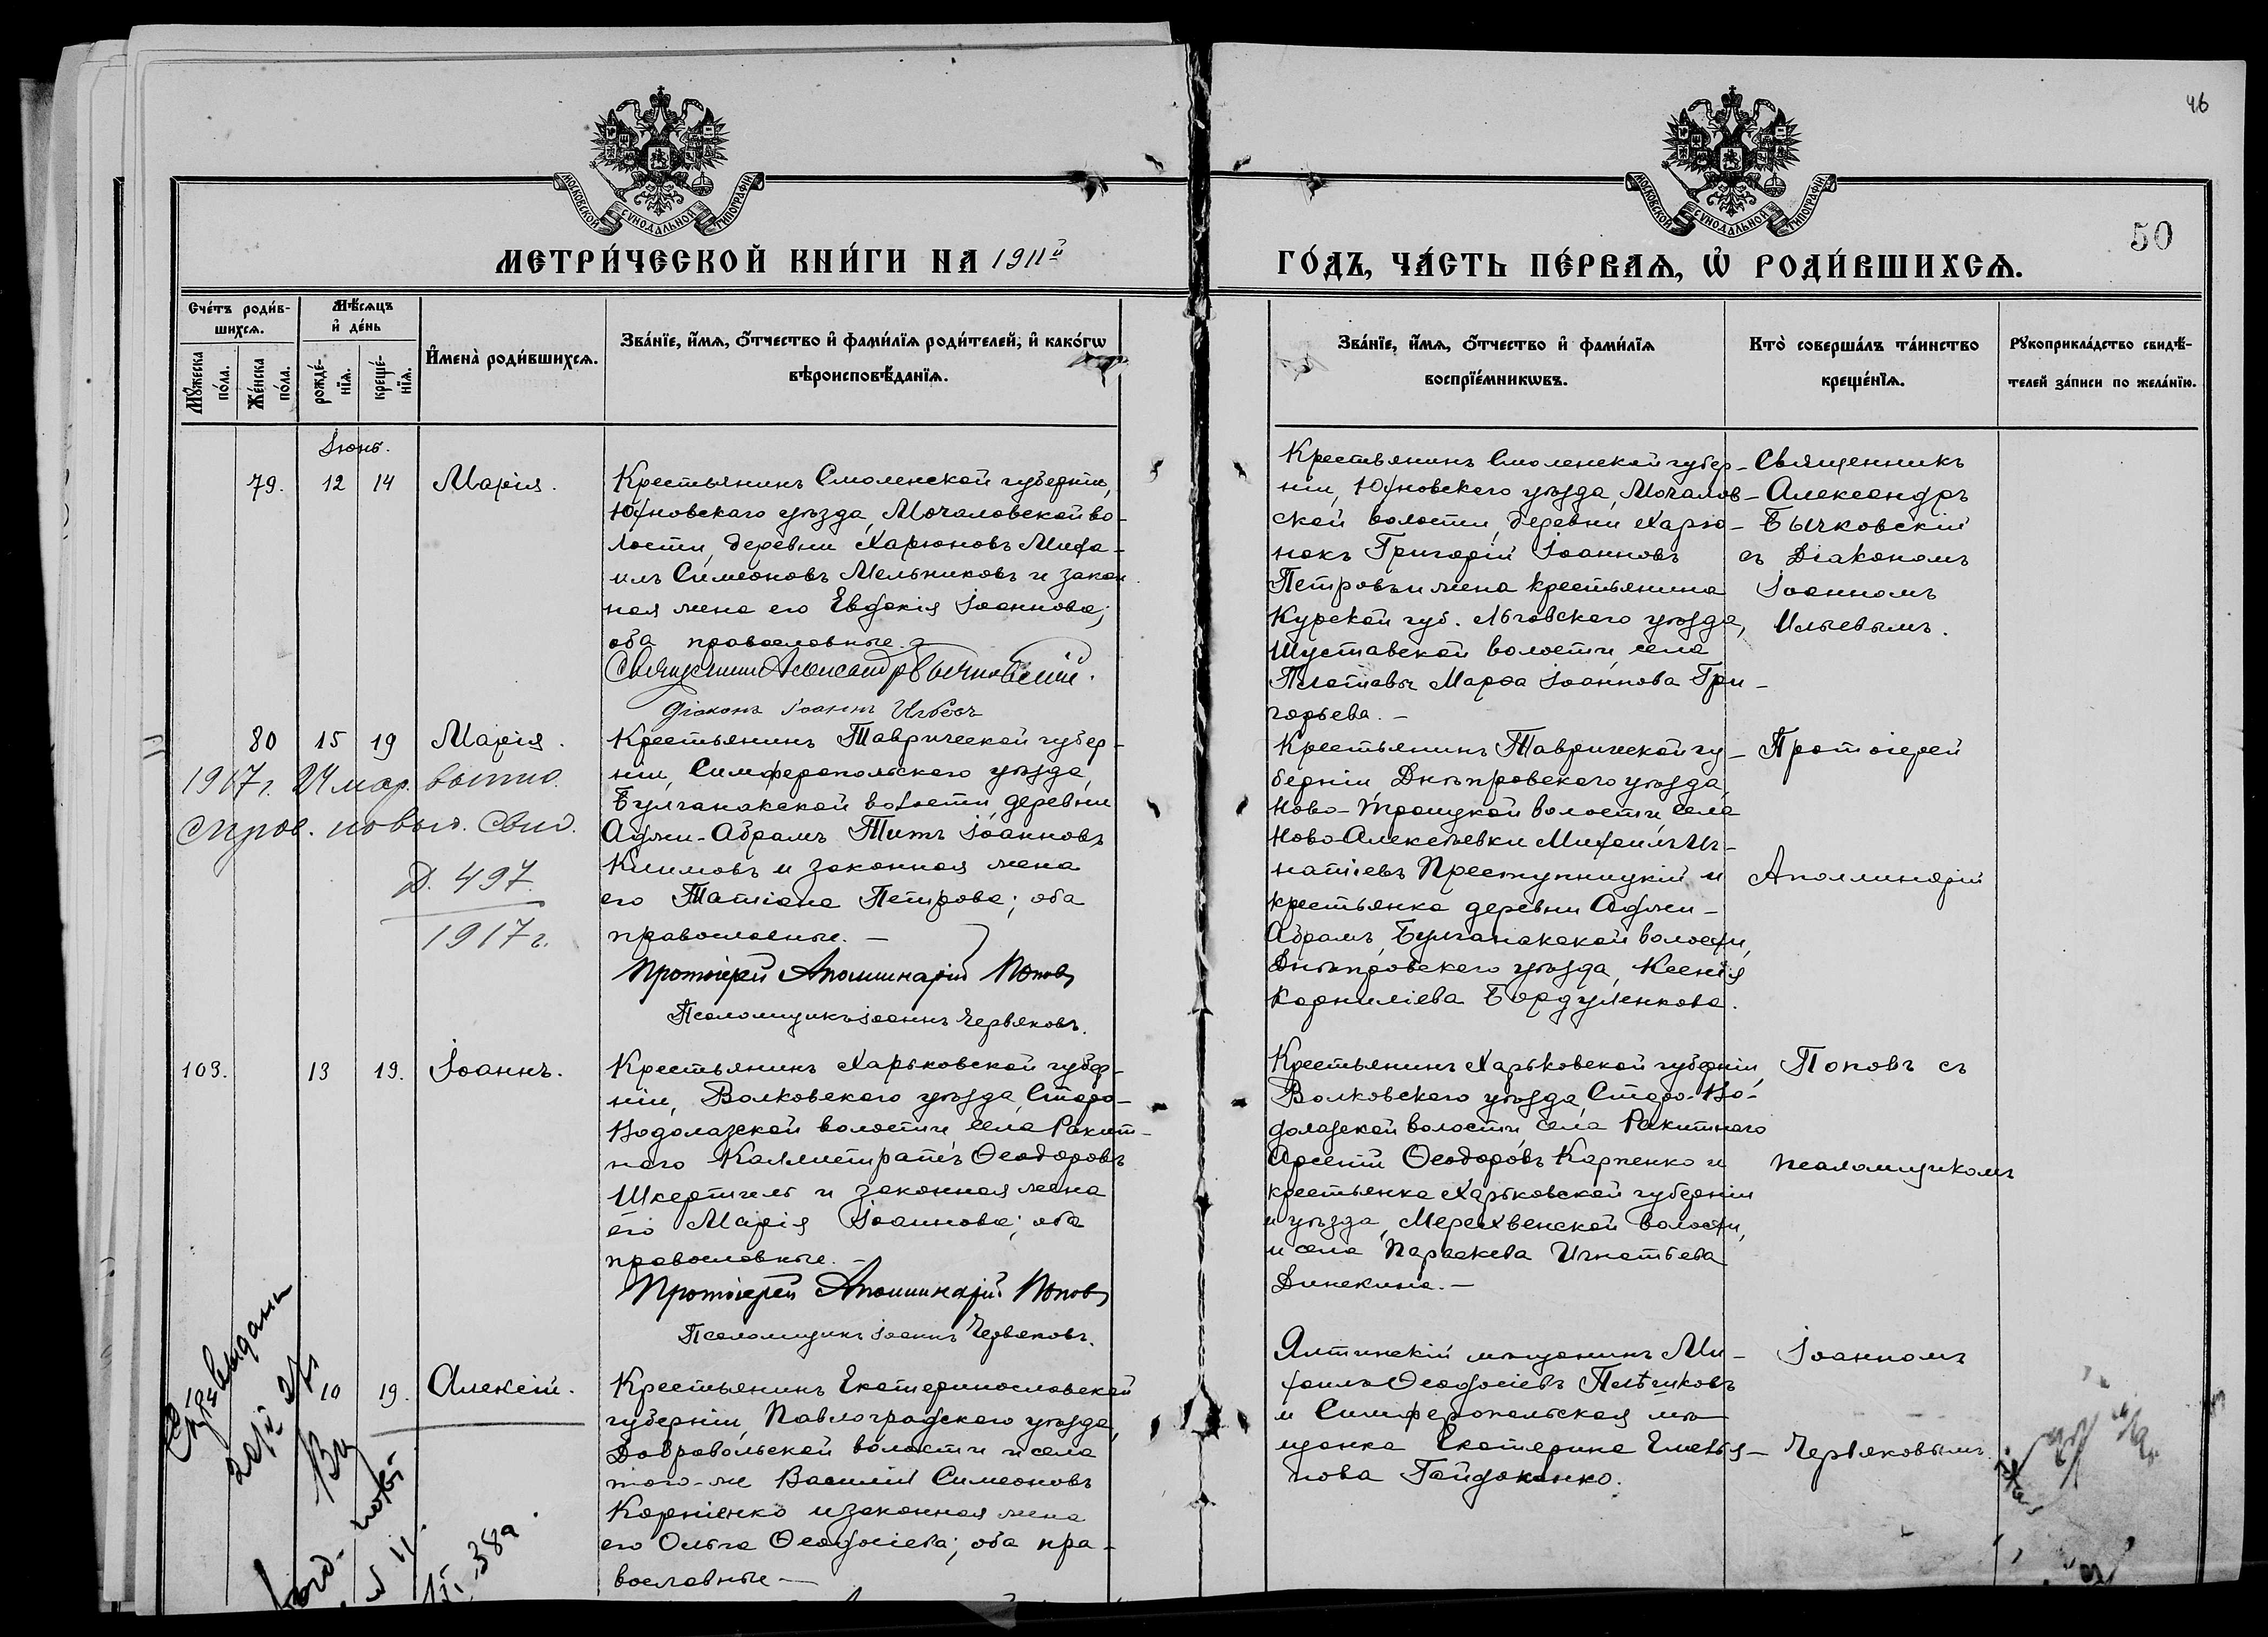 46
50
МОСКОВСКОЙ СѴНОДАЛЬНОЙ ТИПОГРАФІИ
МОСКОВСКОЙ СѴНОДАЛЬНОЙ ТИПОГРАФІИ
МЕТРИ́ЧЕСКОЙ КНИ́ГИ НА 1911й
ГО́ДЪ, ЧА́СТЬ ПЕ́РВАѦ, Ѡ҆ РОДИ́ВШИХСѦ.
Сче́тъ роди́в-
шихсѧ.
Мꙋ́жеска по́ла.
Же́нска по́ла.
Мѣ́сѧцъ
и҆ де́нь
рожде́-
нїѧ.
креще́-
нїѧ.
И҆мена̀ роди́вшихсѧ.
Зва́нїе, и҆́мѧ, ѻ҆́тчество и҆ фами́лїѧ роди́телей, и҆ како́гѡ
вѣроисповѣ́данїѧ.
Зва́нїе, и҆́мѧ, ѻ҆́тчество и҆ фами́лїѧ
воспрїе́мникѡвъ.
Кто̀ соверша́лъ та́инство
креще́нїѧ.
Рꙋкоприкла́дство свидѣ́-
телей за́писи по жела́нїю.
Іюнь.
79. 12 14 Марія.
Крестьянинъ Смоленской губерніи,
Юхновскаго уѣзда, Мочаловской во-
лости, деревни Харюновъ Миха-
илъ Симеоновъ Мельниковъ и закон-
ная жена его Евдокія Іоаннова;
оба православные.
Священникъ Александръ Бычковскій.
Діаконъ Іоаннъ Ильевъ
Крестьянинъ Смоленской губер-
ніи, Юхновскаго уѣзда, Мочалов-
ской волости, деревни Харю-
нокъ Григорій Іоанновъ
Петровъ и жена крестьянина
Курской губ. Льговскаго уѣзда,
волости, села
Марѳа Іоаннова Гри-
горьева. —
Священникъ
Александръ
Бычковскій
съ Діакономъ
Іоанномъ
Ильевымъ.
80 15 19 Марія.
1917 г. 24 мар.
Д. 497
1917 г.
Крестьянинъ Таврической губер-
ніи, Симферопольскаго уѣзда,
Булганакской волости, деревни
Аджи-Абрамъ Титъ Іоанновъ
Климовъ и законная жена
его Татіана Петрова; оба
православные. —
Протоіерей Аполлинарій Поповъ
Псаломщикъ Іоаннъ Червяковъ.
Крестьянинъ Таврической гу-
берніи Днѣпровскаго уѣзда
Ново-Троицкой волости села
Ново-Алексѣевки Михаилъ Иг-
натіевъ Преступницкій и
крестьянка деревни Аджи-
Абрамъ, Булганакской волости,
Днѣпровскаго уѣзда, Ксенія
Корниліева Бордуленкова.
Протоіерей
Аполлинарій
103. 13 19. Іоаннъ.
Крестьянинъ Харьковской губер-
ніи, Волковскаго уѣзда, Старо-
Водолазской волости села Ракит-
наго Каллистратъ Ѳеодоровъ
и законная жена
его Марія Іоаннова; оба
православные. —
Протоіерей Аполлинарій Поповъ
Псаломщикъ Іоаннъ Червяковъ.
Крестьянинъ Харьковской губерніи,
Волковскаго уѣзда, Старо-Во-
долазской волости села Ракитнаго
Арсеній Ѳеодоровъ Карпенко и
крестьянка Харьковской губерніи
и уѣзда, Мерехвенской волости,
и села Параскева Игнатьева
Динекина. —
Поповъ съ
псаломщикомъ
10 19. Алексій.
Крестьянинъ Екатеринославской
губерніи, Павлоградскаго уѣзда,
Добровольской волости и села
того-же Василій Симеоновъ
Корніенко и законная жена
его Ольга Ѳеодосіева; оба пра-
вославные —
Ялтинскій мѣщанинъ Ми-
хаилъ Ѳеодосіевъ
и Симферопольская мѣ-
щанка Екатерина Емелья-
нова Гайдоканко.
Іоанномъ
Червяковымъ.